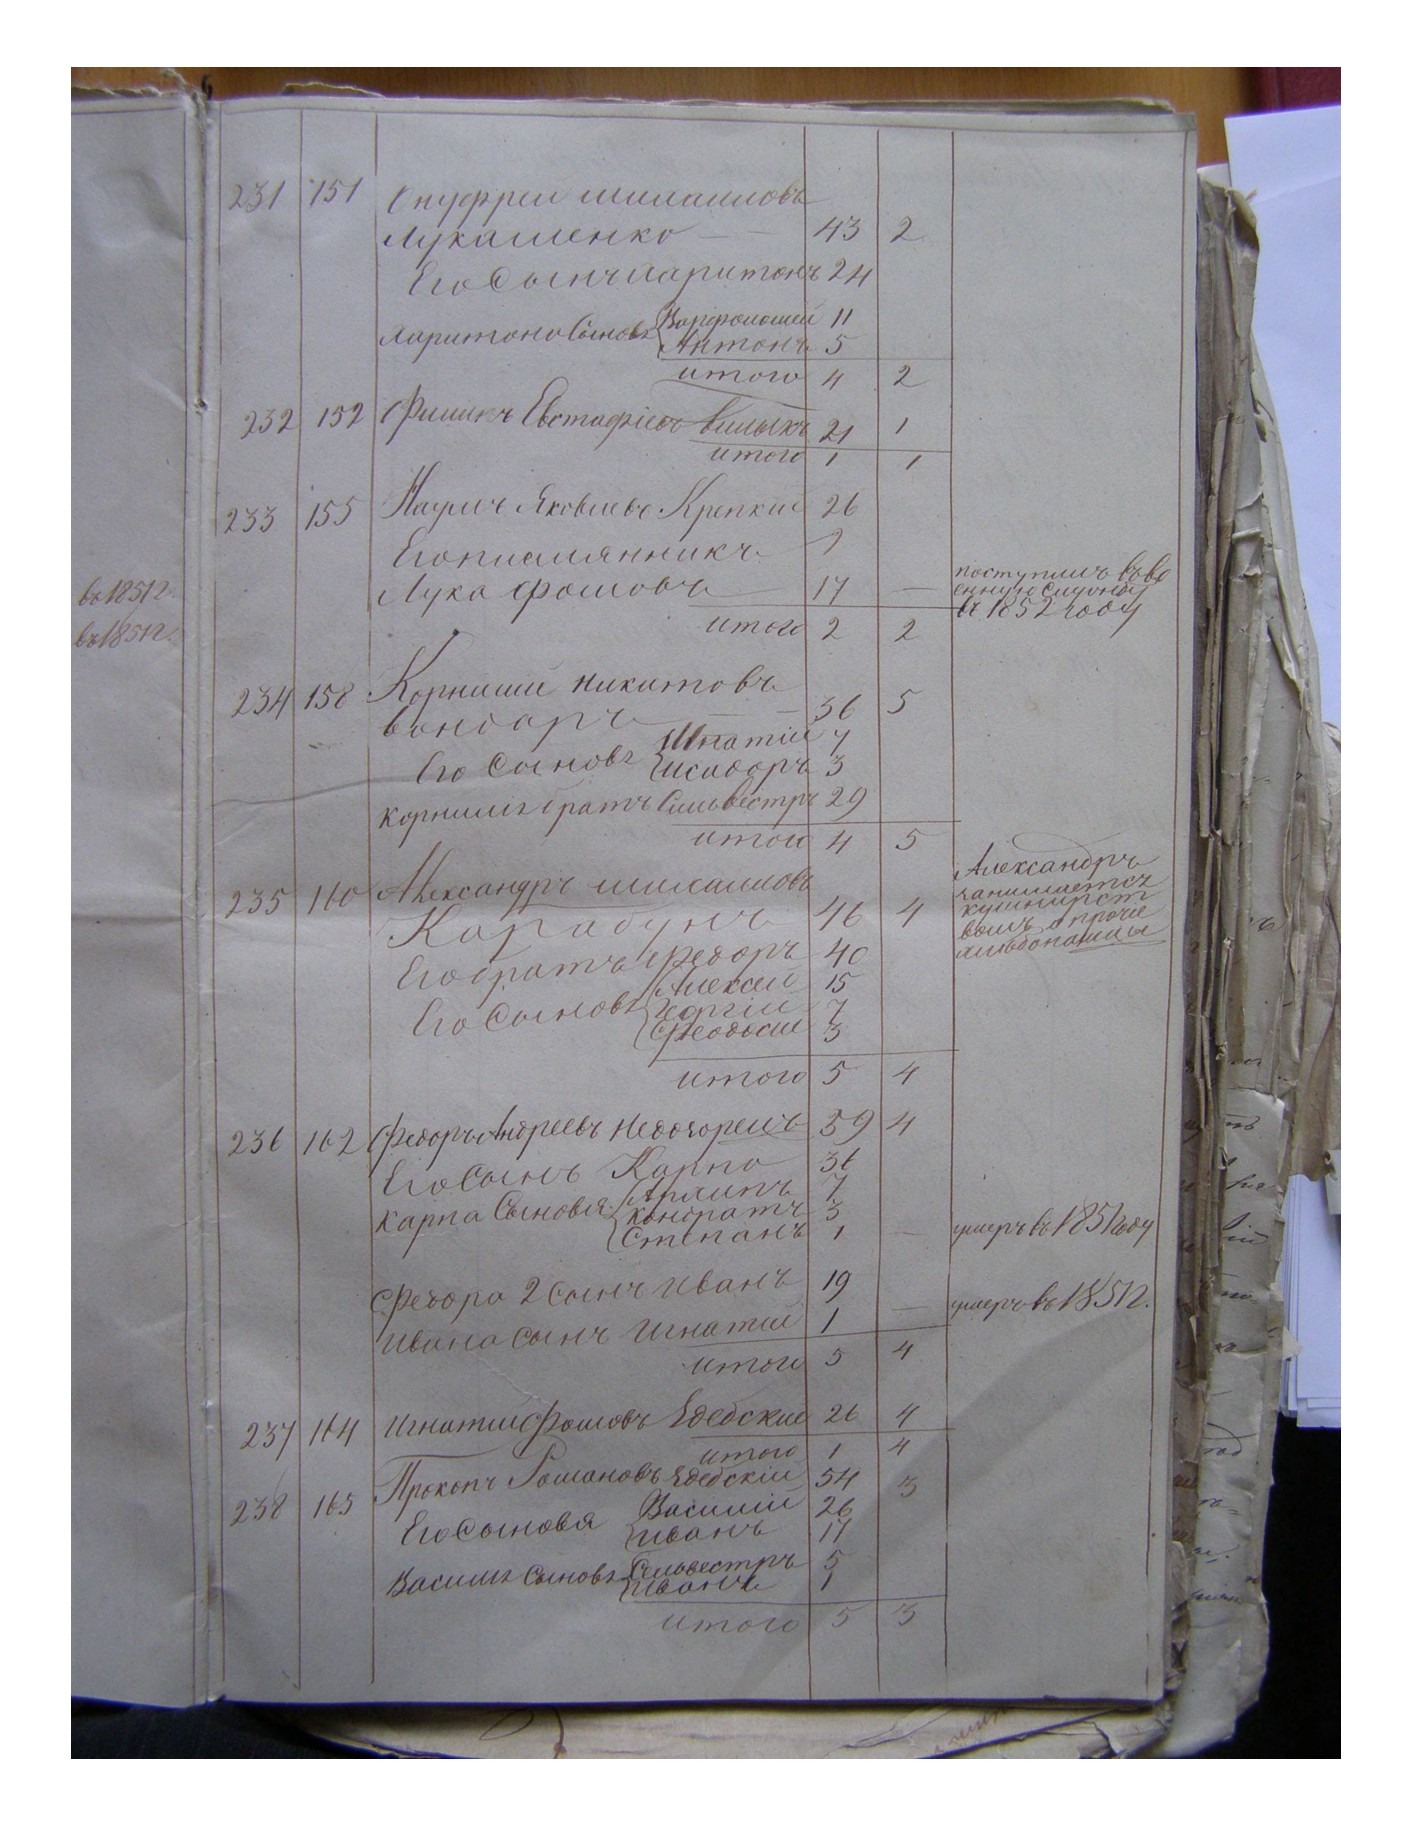 231 151 Онуфрей Михайловъ
Лукашенко — — 43 2
Его Сынъ Харитонъ 24
Харитона Сыновья Варфоломей 11
Антонъ 5
итого 4 2
232 152 Филипъ Евстафіевъ Билыкъ 21 1
итого 1 1
233 155 Наумъ Яковлевъ Крепкий 26
Его племянникъ 2
Лука Фомовъ 17 — поступилъ въ во
енную Службу
въ 1852 году
итого 2 2
въ 1851 г.
въ 1851 г.
234 158 Корнилий Никитовъ
Бондарь — — 36 5
Его Сыновья Игнатій 7
Исидоръ 3
Корнилія братъ Сильвестръ 29
итого 4 5
235 160 Александръ Михайловъ
Карабунъ 46 4
Александръ
занимается
кушнирст
вомъ а прочіе
хлебопашцы
Его братъ Федоръ 40
Его Сыновья Алексей 15
Георгій 7
Феодосий 3
итого 5 4
236 162 Федоръ Андреевъ 59 4
Его Сынъ Карпо 36
Карпа Сыновья Архипъ 7
Кондратъ 3
Степанъ 1 — умеръ въ 1851 году
Федора 2 Сынъ Иванъ 19
Ивана Сынъ Игнатій 1 — умеръ въ 1851 г.
итого 5 4
237 164 Игнатий Фомовъ Едебский 26 4
итого 1 4
238 165 Прокопъ Романовъ Едебскій 54 3
Его Сыновья Василій 26
Иванъ 17
Василія Сыновья Сильвестръ 5
Иванъ 1
итого 5 3